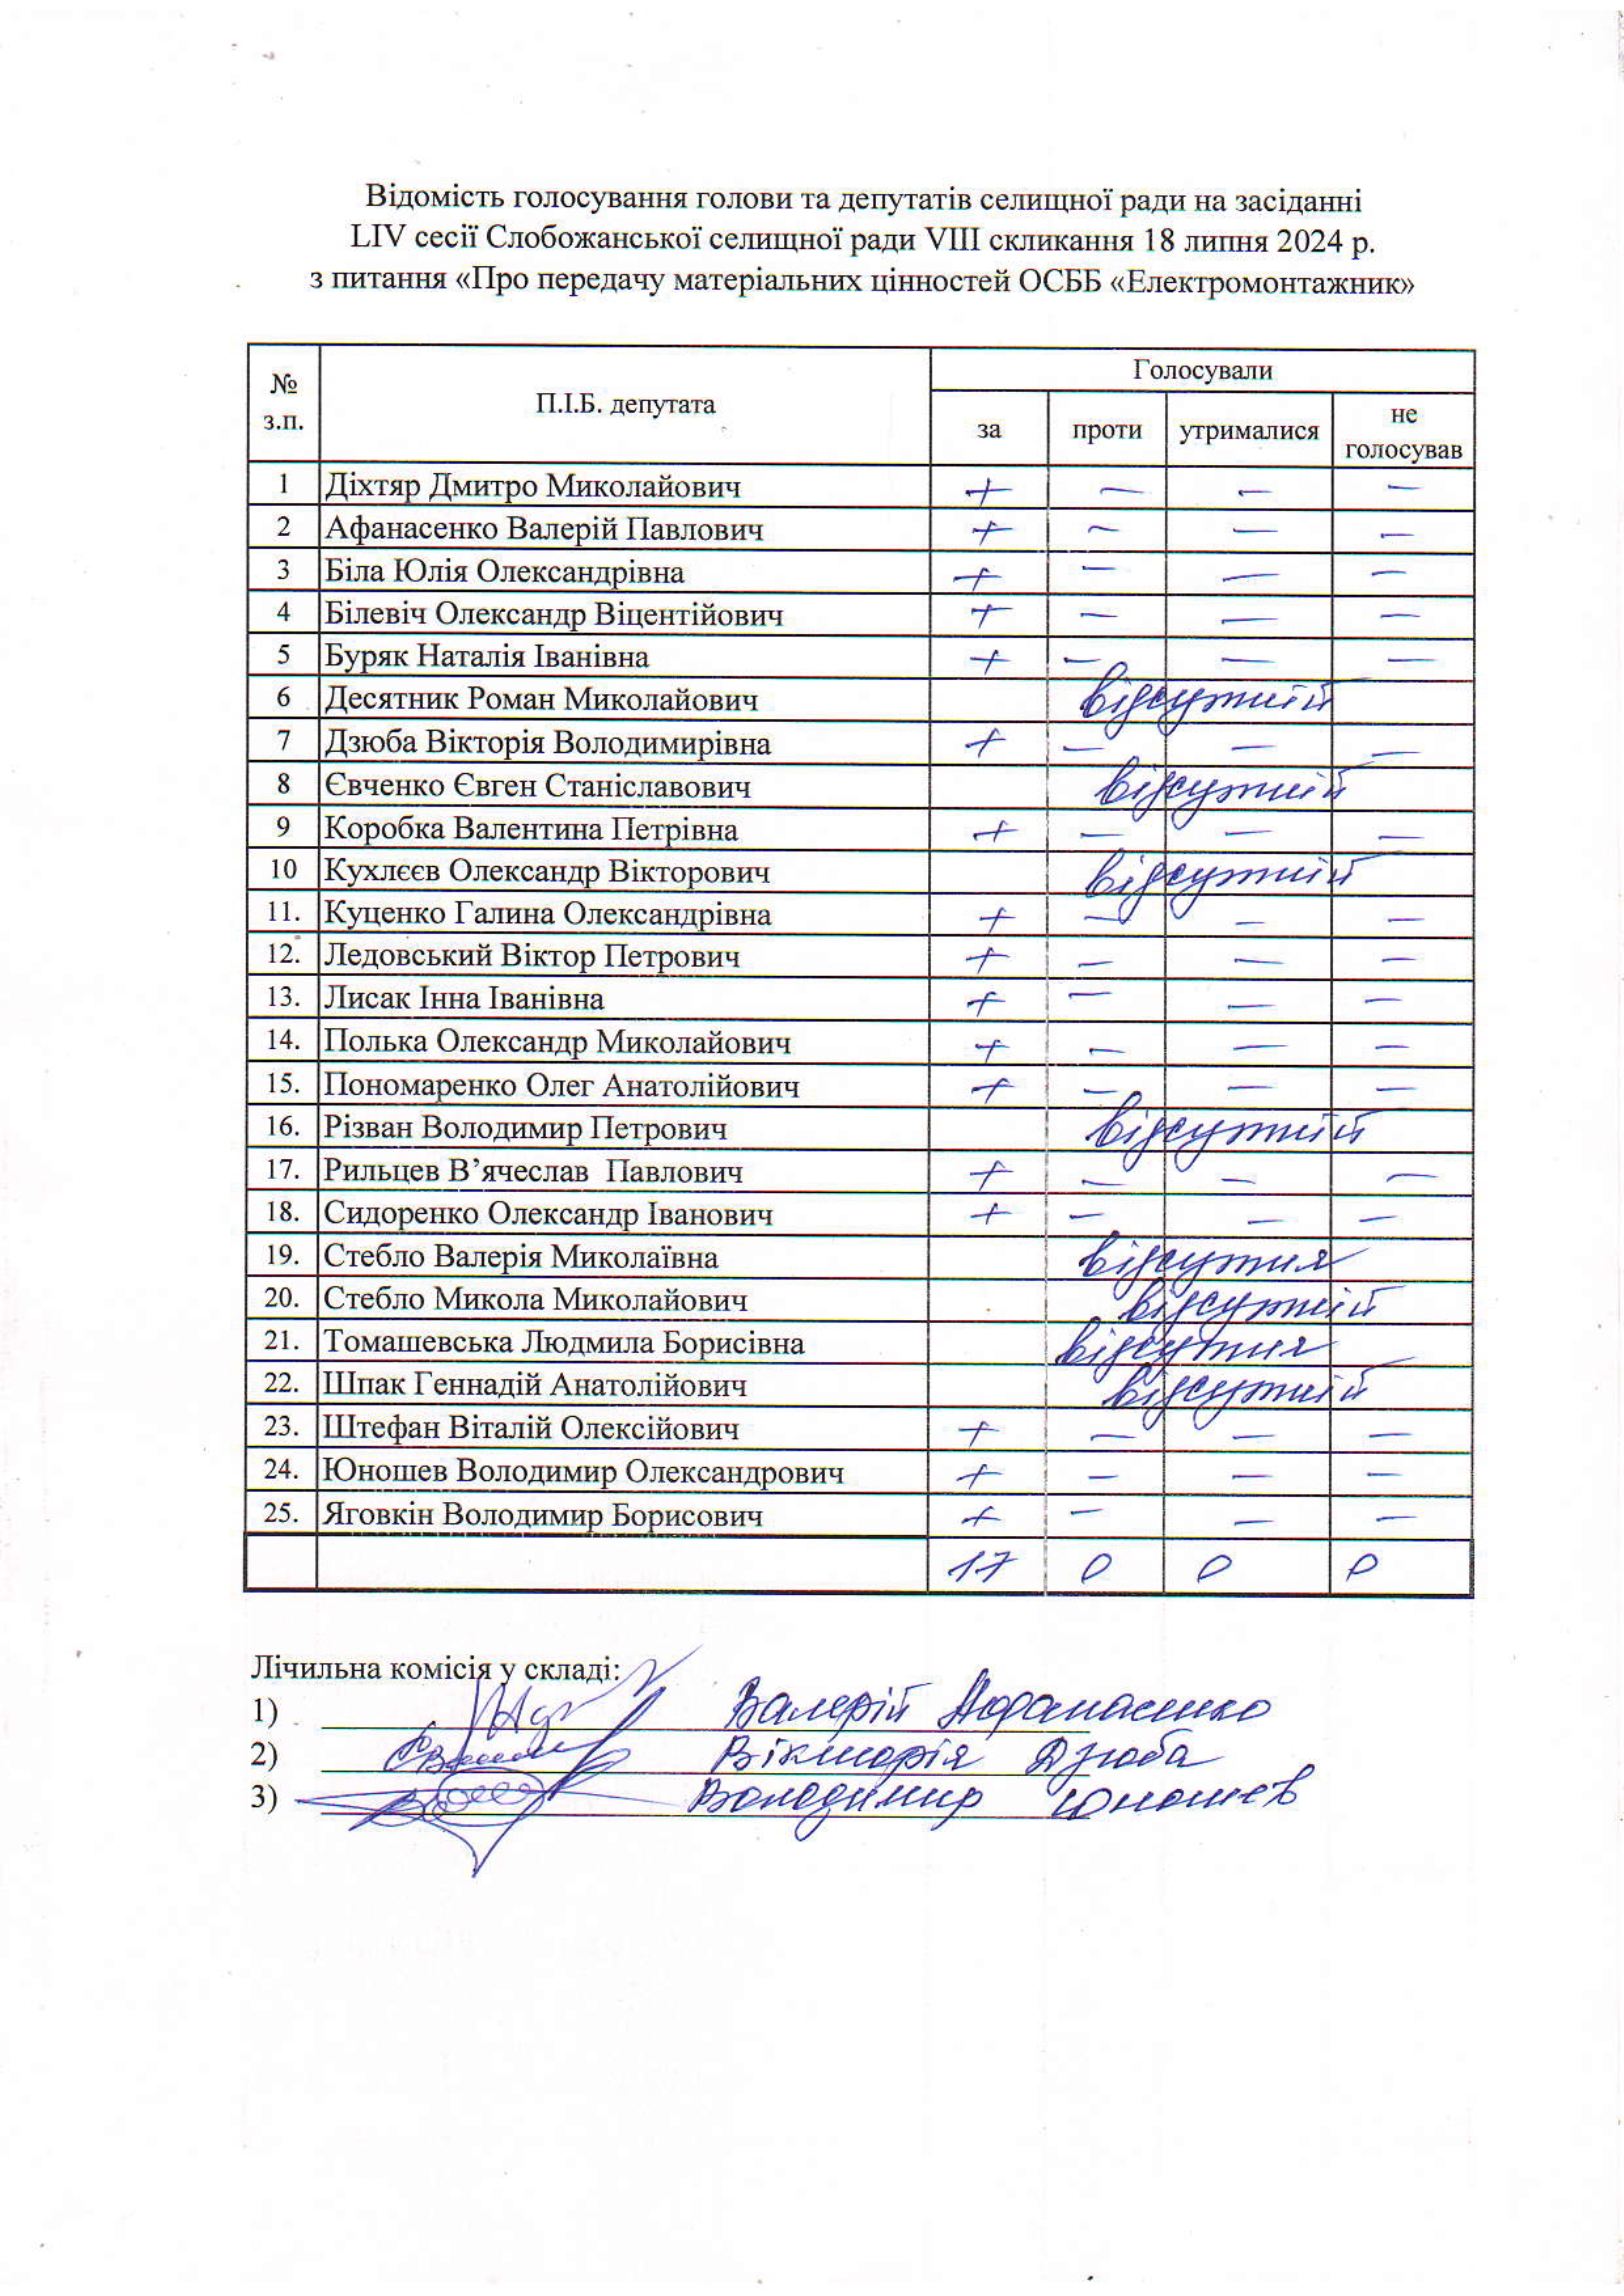 Відомість голосування голови та депутатів селищної ради на засіданні
LIV сесії Слобожанської селищної ради VIII скликання 18 липня 2024 р.
з питання «Про передачу матеріальних цінностей ОСББ «Електромонтажник»
№ з.п. П.І.Б. депутата Голосували
за проти утрималися не голосував
1 Діхтяр Дмитро Миколайович + – – –
2 Афанасенко Валерій Павлович + – – –
3 Біла Юлія Олександрівна + – – –
4 Білевіч Олександр Віцентійович + – – –
5 Буряк Наталія Іванівна + – – –
6 Десятник Роман Миколайович відсутній
7 Дзюба Вікторія Володимирівна + – – –
8 Євченко Євген Станіславович відсутній
9 Коробка Валентина Петрівна + – – –
10 Кухлєєв Олександр Вікторович відсутній
11. Куценко Галина Олександрівна + – – –
12. Ледовський Віктор Петрович + – – –
13. Лисак Інна Іванівна + – – –
14. Полька Олександр Миколайович + – – –
15. Пономаренко Олег Анатолійович + – – –
16. Різван Володимир Петрович відсутній
17. Рильцев В’ячеслав Павлович + – – –
18. Сидоренко Олександр Іванович + – – –
19. Стебло Валерія Миколаївна відсутня
20. Стебло Микола Миколайович відсутній
21. Томашевська Людмила Борисівна відсутня
22. Шпак Геннадій Анатолійович відсутній
23. Штефан Віталій Олексійович + – – –
24. Юношев Володимир Олександрович + – – –
25. Яговкін Володимир Борисович + – – –
17 0 0 0
Лічильна комісія у складі:
1) Валерій Афанасенко
2) Вікторія Дзюба
3) Володимир Юношев